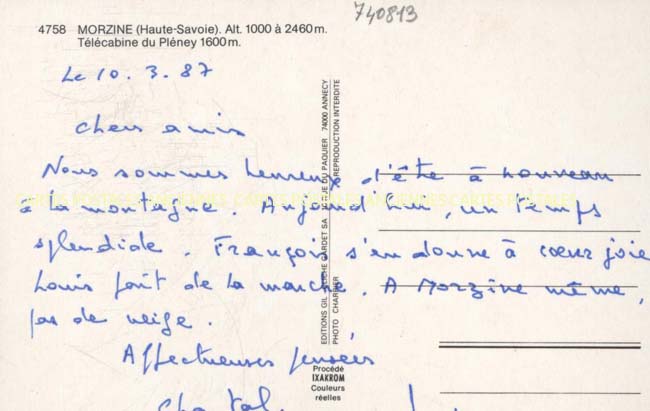 740813
4758 MORZINE (Haute-Savoie). Alt. 1000 à 2460 m.
Télécabine du Pléney 1600 m.
Le 10. 3. 87
chers amis
Nous sommes heureux d'être à nouveau
à la montagne. Aujourd'hui, un temps
splendide. François s'en donne à cœur joie
Louis fait de la marche. A Morzine même,
pas de neige.
Affectueuses pensées
Chantal
EDITIONS GIL
RUE DU PAQUIER 74000 ANNECY
PHOTO CHARRIER
REPRODUCTION INTERDITE
Procédé
IXAKROM
Couleurs
réelles